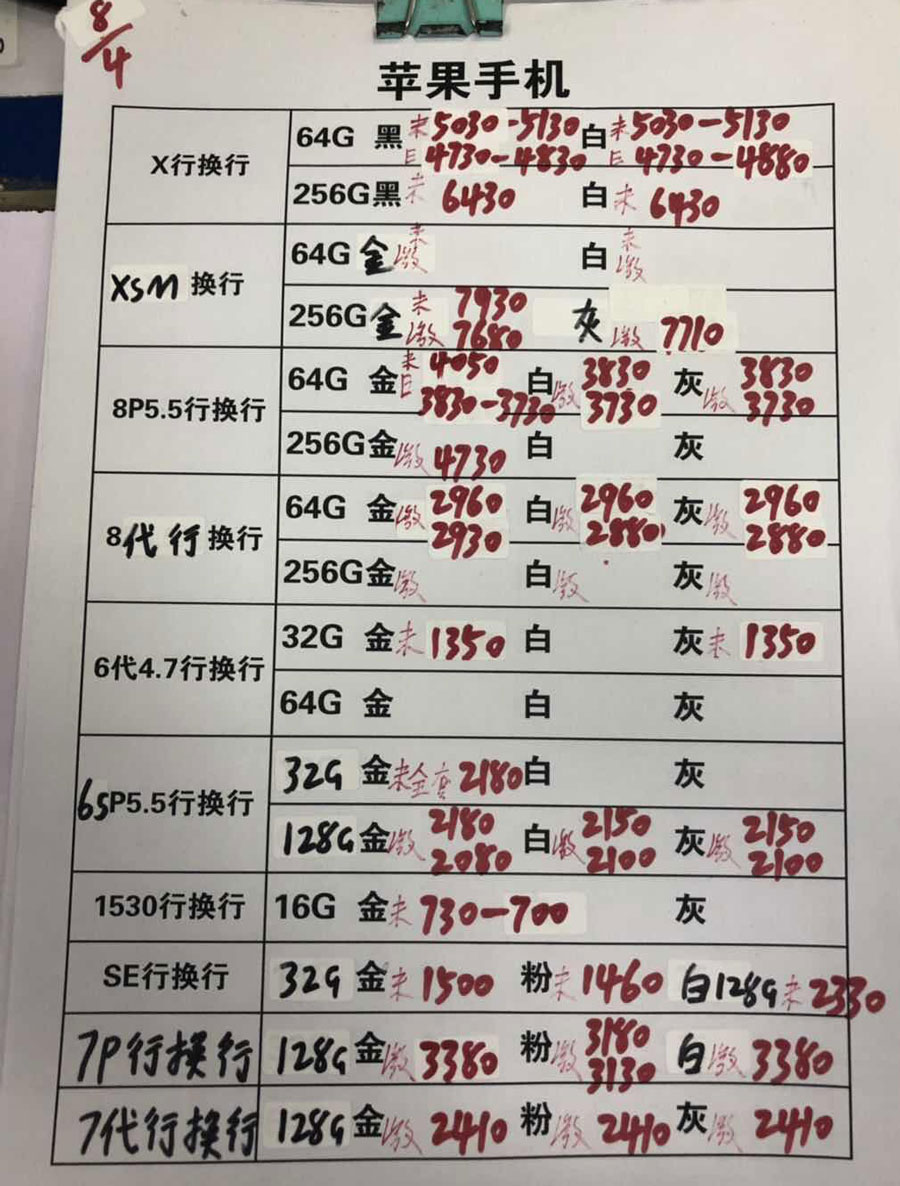 8/4
苹果手机
X行换行
64G 黑 未 5030-5130 白 未 5030-5130
已 4730-4830 已 4730-4880
256G 黑 未 6430 白 未 6430
XSM 换行
64G 金 未 白 未
激 激
256G 金 未 7930 灰
激 7680 激 7710
8P5.5行换行
64G 金 未 4050 白 3830 灰 3830
已 3830-3730 激 3730 激 3730
256G 金 激 4730 白 灰
8代行换行
64G 金 激 2960 白 激 2960 灰 激 2960
2930 2880 2880
256G 金 激 白 激 灰 激
6代4.7行换行
32G 金 未 1350 白 灰 未 1350
64G 金 白 灰
6SP5.5行换行
32G 金 未金 2180 白 灰
128G 金 激 2180 白 激 2150 灰 激 2150
2080 2100 2100
1530行换行
16G 金 未 730-700 灰
SE行换行
32G 金 未 1500 粉 未 1460 白128G 未 2330
7P行换行
128G 金 激 3380 粉 激 3180 白 激 3380
3130
7代行换行
128G 金 激 2410 粉 激 2410 灰 激 2410